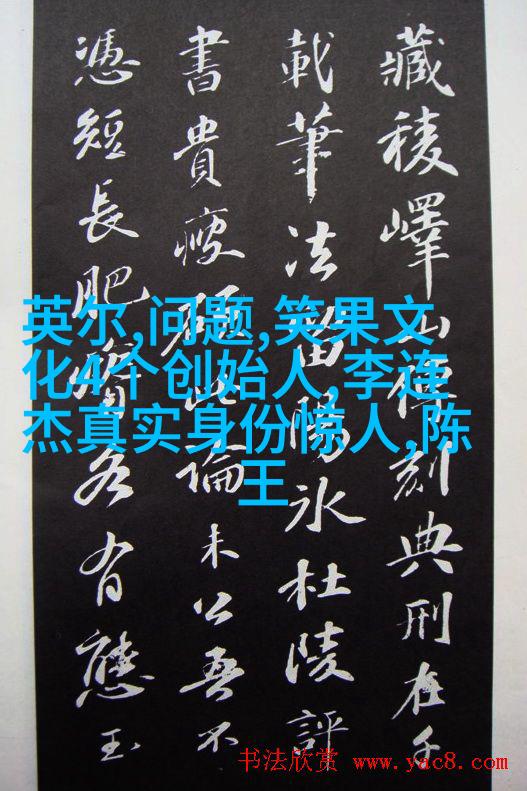 藏稜嶧山傳刻典刑在千
載筆法留陽冰杜陵評
書貴瘦硬此論未公吾不
憑短長肥瘠各有態玉
英尔,问题,笑果文
化4个创始人,李连
杰真实身份惊人,陈
王
书法欣赏 www.yac8.com